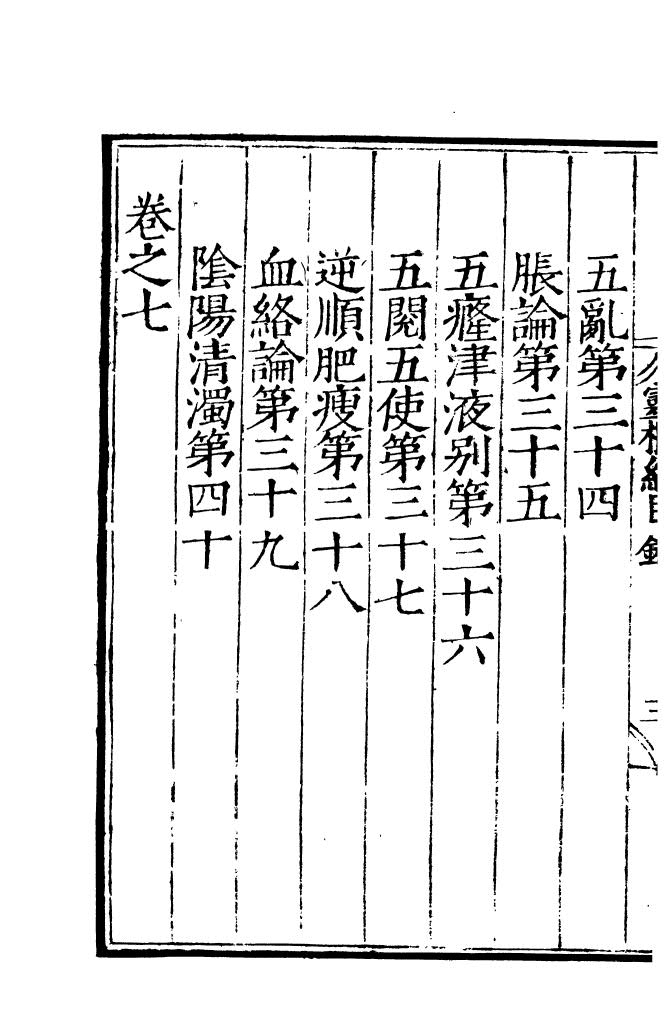 靈樞經目錄
三
五亂第三十四
脹論第三十五
五癃津液别第三十六
五閱五使第三十七
逆順肥瘦第三十八
血絡論第三十九
陰陽清濁第四十
卷之七